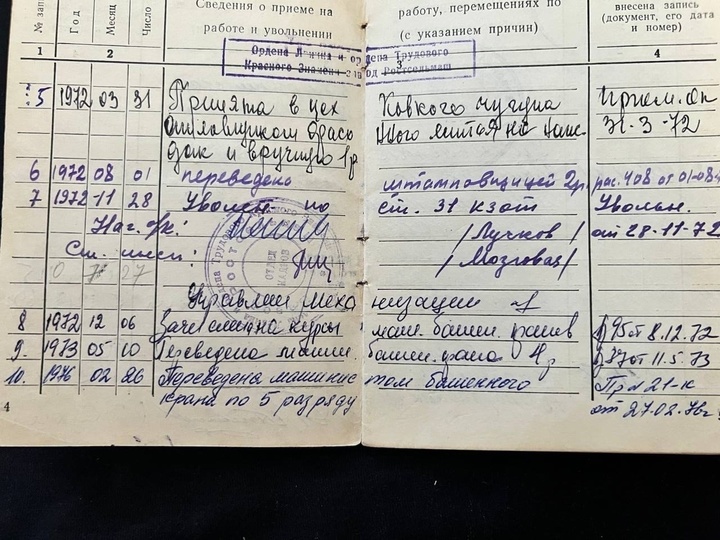 № зап
Год
Месяц
Число
Сведения о приеме на работу, перемещениях по
работе и увольнении (с указанием причин)
внесена запись
(документ, его дата
и номер)
1 2 3 4
Ордена Ленина и ордена Трудового
Красного Знамени завод Ростсельмаш
5 1972 03 31 Принята в цех Ковкого чугуна Прием. ок
31-3-72
дак и вручную 1р
6 1972 08 01 переведена штамповщицей 2р. рас. 408 от 01-08-
7 1972 11 28 Уволен по ст. 31 кзот Увольн.
Нач. о/к: /Лучков/ от 28-11-72
Ст. инсп: /Мозговая/
0 7 27
Управлении механизации
8 1972 12 06 Зачислена на курсы маш. башен. кранов п 95 от 8.12.72
9. 1973 05 10 Переведена машин. башен. крана 4р от 11.5.73
10. 1976 02 26 Переведена машинистом башенного Пр № 21-к
крана по 5 разряду от 27.02.76г
4